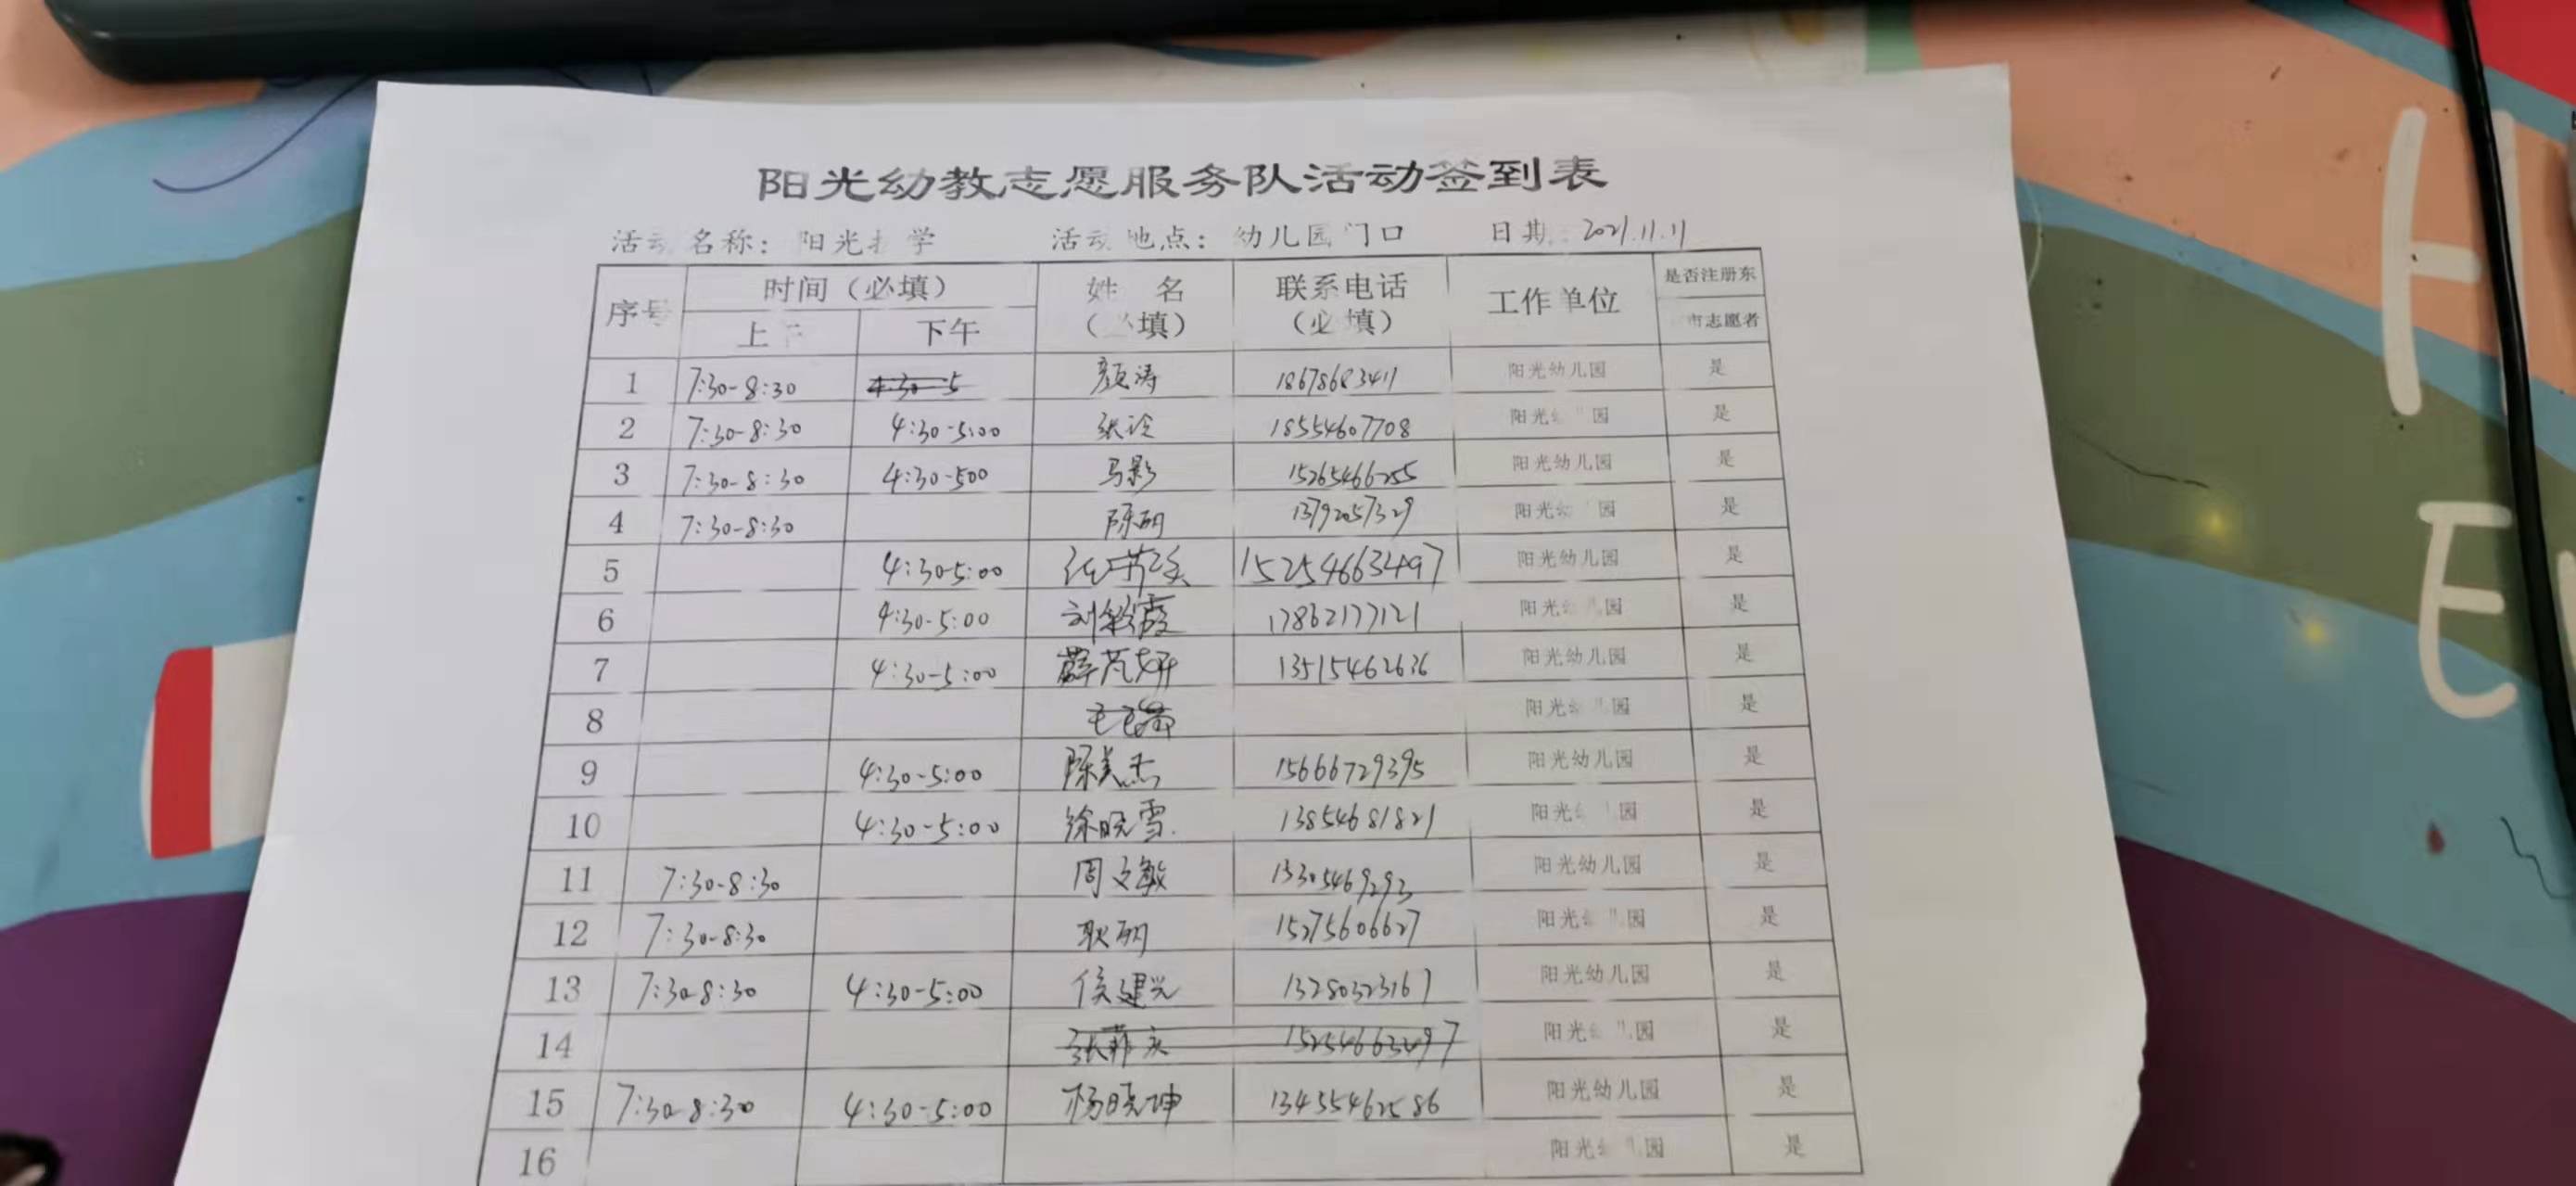 阳光幼教志愿服务队活动签到表
活动名称：阳光护学 活动地点：幼儿园门口 日期：2021.11.11
序号 时间（必填） 姓 名（必填） 联系电话（必填） 工作单位 是否注册东
上午 下午 市志愿者
1 7:30-8:30 4:30-5 颜涛 18678683411 阳光幼儿园 是
2 7:30-8:30 4:30-5:00 张 18554607708 阳光幼儿园 是
3 7:30-8:30 4:30-500 马影 15265466255 阳光幼儿园 是
4 7:30-8:30 陈硕 13792057329 阳光幼儿园 是
5 4:30-5:00 15254663497 阳光幼儿园 是
6 4:30-5:00 刘 霞 17862177121 阳光幼儿园 是
7 4:30-5:00 薛芃妍 13515462636 阳光幼儿园 是
8 阳光幼儿园 是
9 4:30-5:00 陈美杰 15666729395 阳光幼儿园 是
10 4:30-5:00 徐晓雪 13854681821 阳光幼儿园 是
11 7:30-8:30 周文敏 13305469293 阳光幼儿园 是
12 7:30-8:30 耿硕 15275606627 阳光幼儿园 是
13 7:30-8:30 4:30-5:00 侯建兴 13280323167 阳光幼儿园 是
14 15254663497 阳光幼儿园 是
15 7:30-8:30 4:30-5:00 杨晓坤 13455462586 阳光幼儿园 是
16 阳光幼儿园 是
H
E